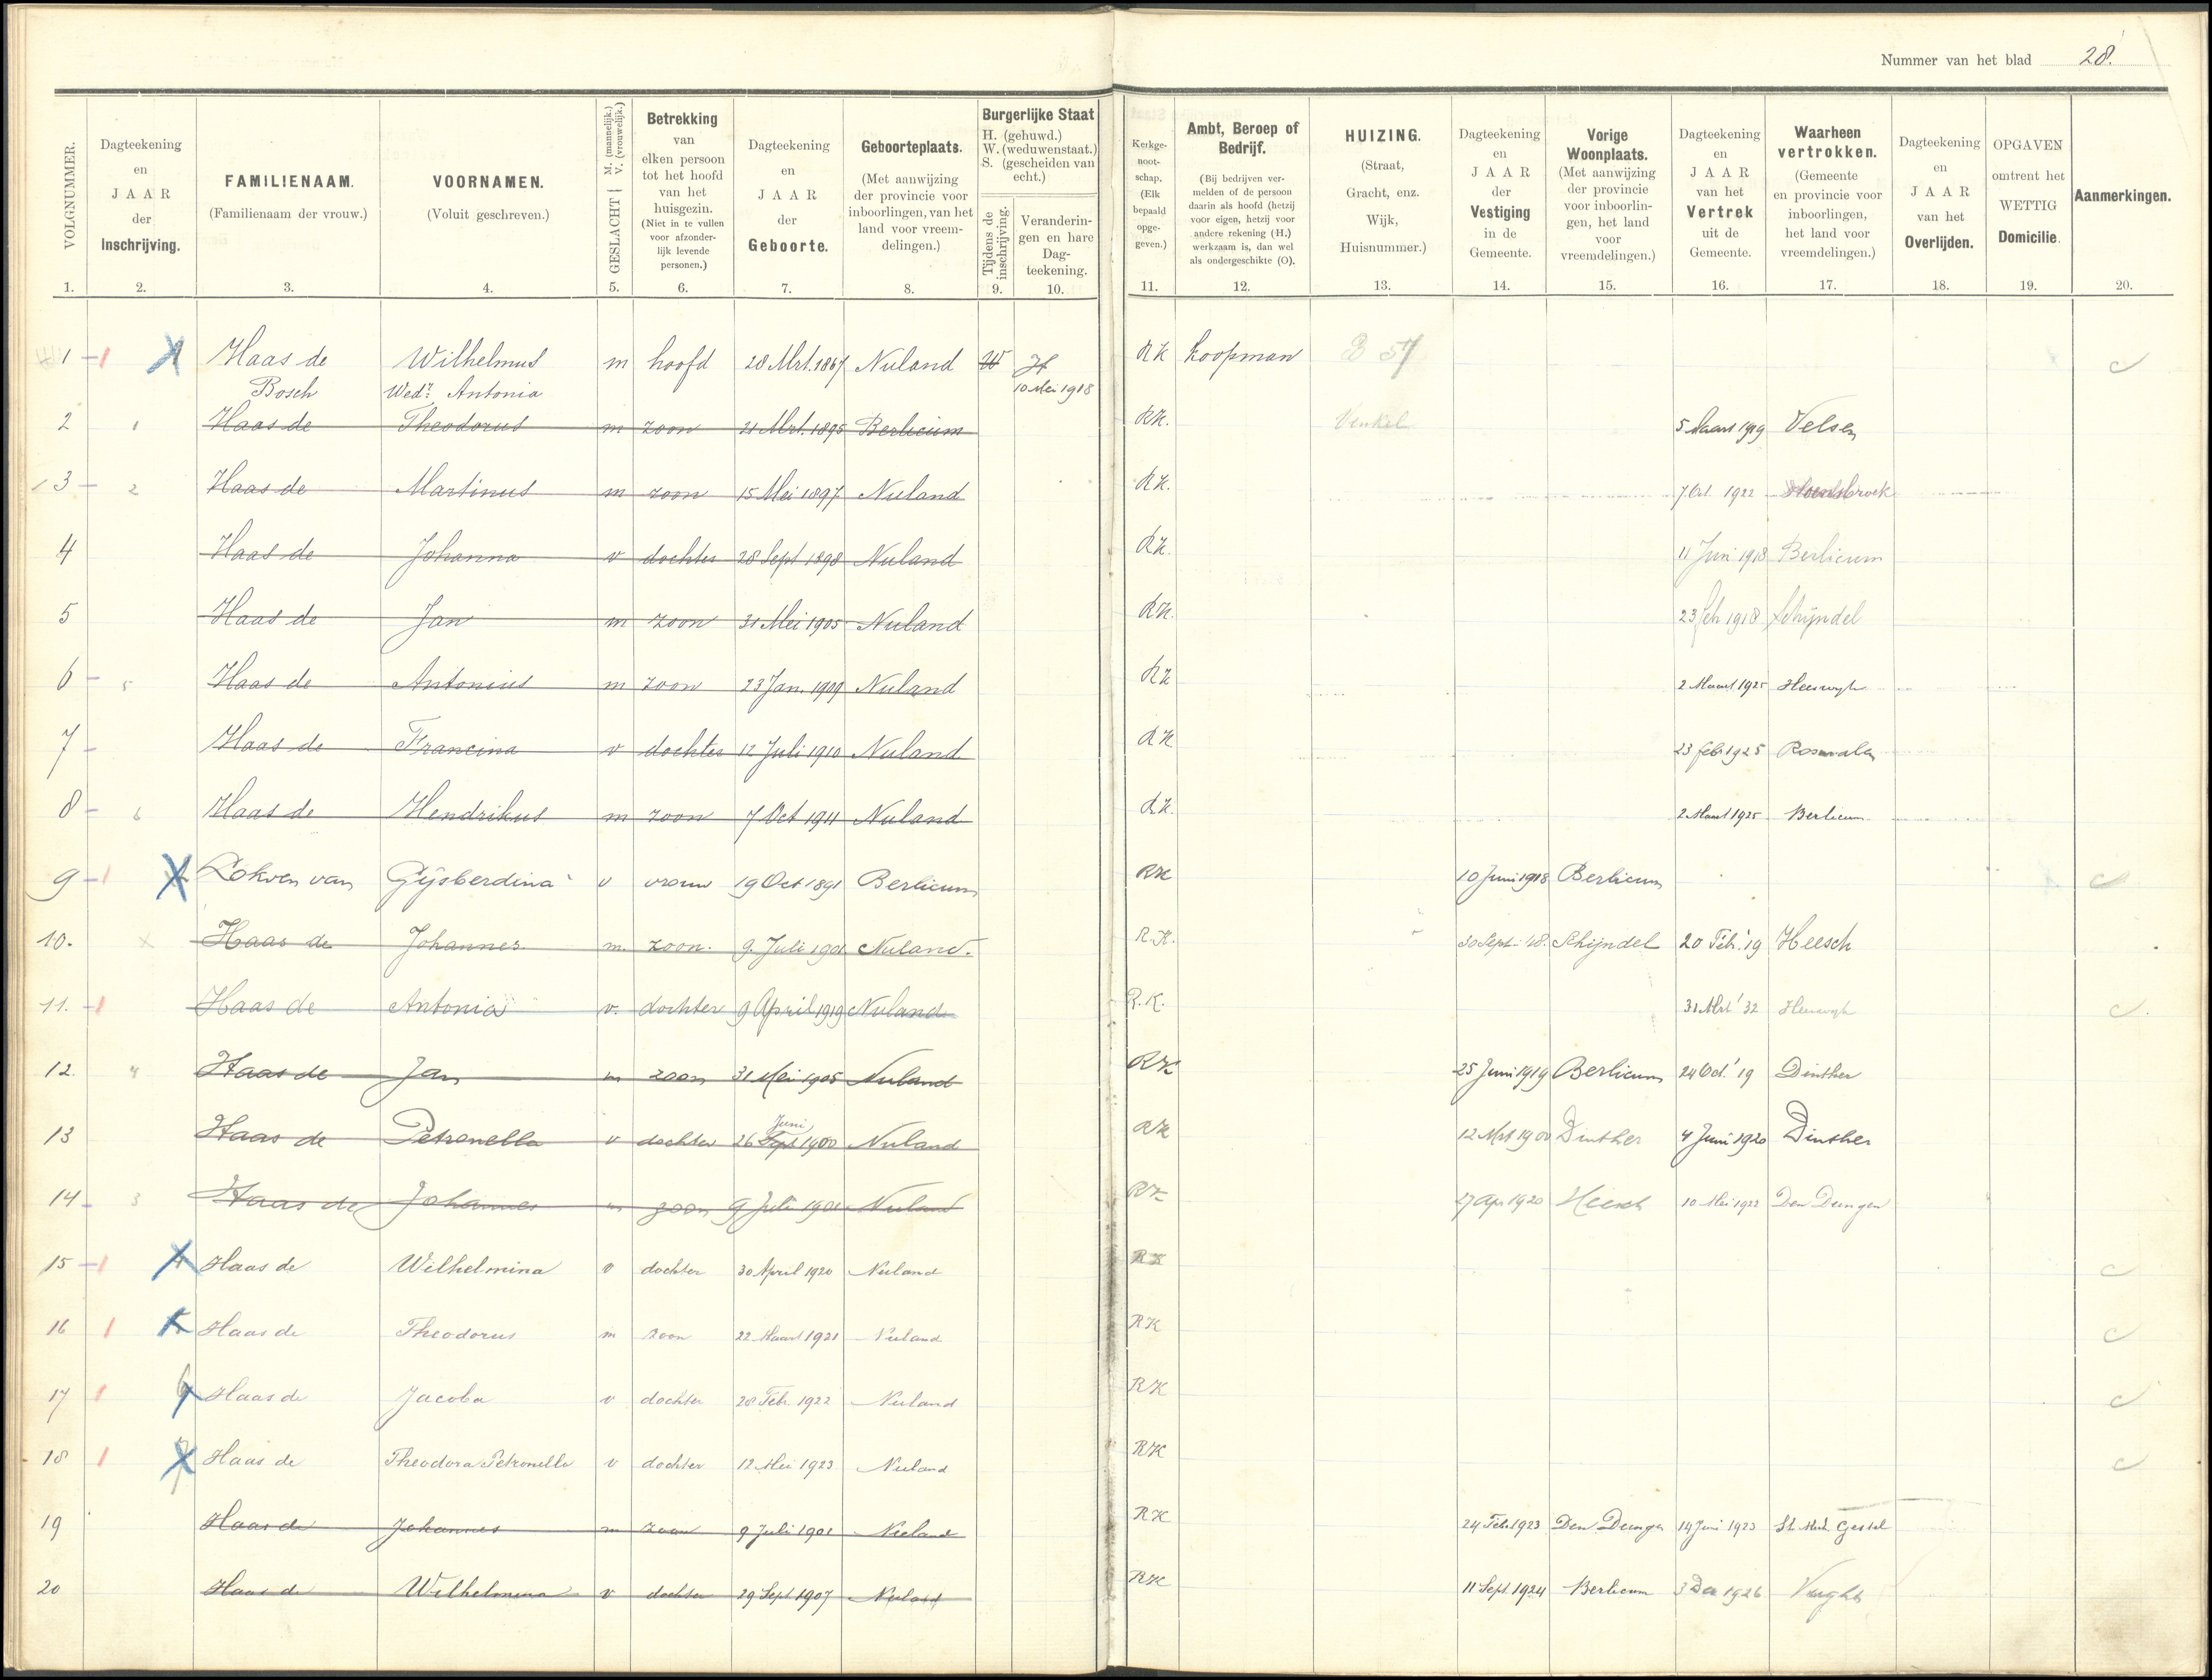 Nummer van het blad 28.
VOLGNUMMER. 1.
Dagteekening en JAAR der Inschrijving. 2.
FAMILIENAAM. (Familienaam der vrouw.) 3.
VOORNAMEN. (Voluit geschreven.) 4.
GESLACHT { M. (mannelijk.) V. (vrouwelijk.) 5.
Betrekking van elken persoon tot het hoofd van het huisgezin. (Niet in te vullen voor afzonderlijk levende personen.) 6.
Dagteekening en JAAR der Geboorte. 7.
Geboorteplaats. (Met aanwijzing der provincie voor inboorlingen, van het land voor vreemdelingen.) 8.
Burgerlijke Staat H. (gehuwd.) W. (weduwenstaat.) S. (gescheiden van echt.)
Tijdens de inschrijving. 9.
Veranderingen en hare Dagteekening. 10.
Kerkgenootschap. (Elk bepaald opgegeven.) 11.
Ambt, Beroep of Bedrijf. (Bij bedrijven vermelden of de persoon daarin als hoofd (hetzij voor eigen, hetzij voor andere rekening (H.) werkzaam is, dan wel als ondergeschikte (O). 12.
HUIZING. (Straat, Gracht, enz. Wijk, Huisnummer.) 13.
Dagteekening en JAAR der Vestiging in de Gemeente. 14.
Vorige Woonplaats. (Met aanwijzing der provincie voor inboorlingen, het land voor vreemdelingen.) 15.
Dagteekening en JAAR van het Vertrek uit de Gemeente. 16.
Waarheen vertrokken. (Gemeente en provincie voor inboorlingen, het land voor vreemdelingen.) 17.
Dagteekening en JAAR van het Overlijden. 18.
OPGAVEN omtrent het WETTIG Domicilie. 19.
Aanmerkingen. 20.
1 1 Haas de Wilhelmus m hoofd 28 Mrt. 1867 Nuland W H RK koopman B 57
Bosch Wedr. Antonia 10 Mei 1918
2 1 Haas de Theodorus m zoon 21 Mrt. 1895 Berlicum RK. Vinkel 5 Maart 1919 Velsen
3 2 Haas de Martinus m zoon 15 Mei 1897 Nuland RK. 7 Oct 1922
4 Haas de Johanna v dochter 28 Sept 1898 Nuland RK. 11 Juni 1918 Berlicum
5 Haas de Jan m zoon 31 Mei 1905 Nuland RK. 23 Feb 1918 Schijndel
6 5 Haas de Antonius m zoon 23 Jan. 1909 Nuland RK 2 Maart 1925 Heeswijk
7 Haas de Francina v dochter 12 Juli 1910 Nuland RK 23 feb 1925 Rosmalen
8 6 Haas de Hendrikus m zoon 7 Oct 1911 Nuland RK. 2 Maart 1925 Berlicum
9 1 Lokven van Gijsberdina v vrouw 19 Oct 1891 Berlicum RK 10 Juni 1918 Berlicum
10. Haas de Johannes m. zoon. 9 Juli 1901 Nuland. R.K. 30 Sept '18. Schijndel 20 Feb. '19 Heesch
11. 1 Haas de Antonia v. dochter 9 April 1919 Nuland R.K. 31 Mrt '32 Heeswijk
12. 4 Haas de Jan m zoon 31 Mei 1905 Nuland RK 25 Juni 1919 Berlicum 24 Oct. '19 Dinther
13 Haas de Petronella v dochter 26 Sept Juni 1900 Nuland RK 12 Mrt 1900 Dinther 4 Juni 1920 Dinther
14 3 Haas de Johannes m zoon 9 Juli 1901 Nuland RK 27 Apr 1920 Heesch 10 Mei 1922 Den Dungen
15 1 Haas de Wilhelmina v dochter 30 April 1920 Nuland RK
16 1 Haas de Theodorus m zoon 22 Maart 1921 Nuland RK
17 1 Haas de Jacoba v dochter 28 Feb. 1922 Nuland RK
18 1 Haas de Theodora Petronella v dochter 12 Mei 1923 Nuland RK
19 Haas de Johannes m zoon 9 Juli 1901 Nuland RK 24 Feb. 1923 Den Dungen 14 Juni 1923 St. Mich. Gestel
20 Haas de Wilhelmina v dochter 29 Sept 1907 Nuland RK 11 Sept. 1924 Berlicum 3 Dec 1926 Vught